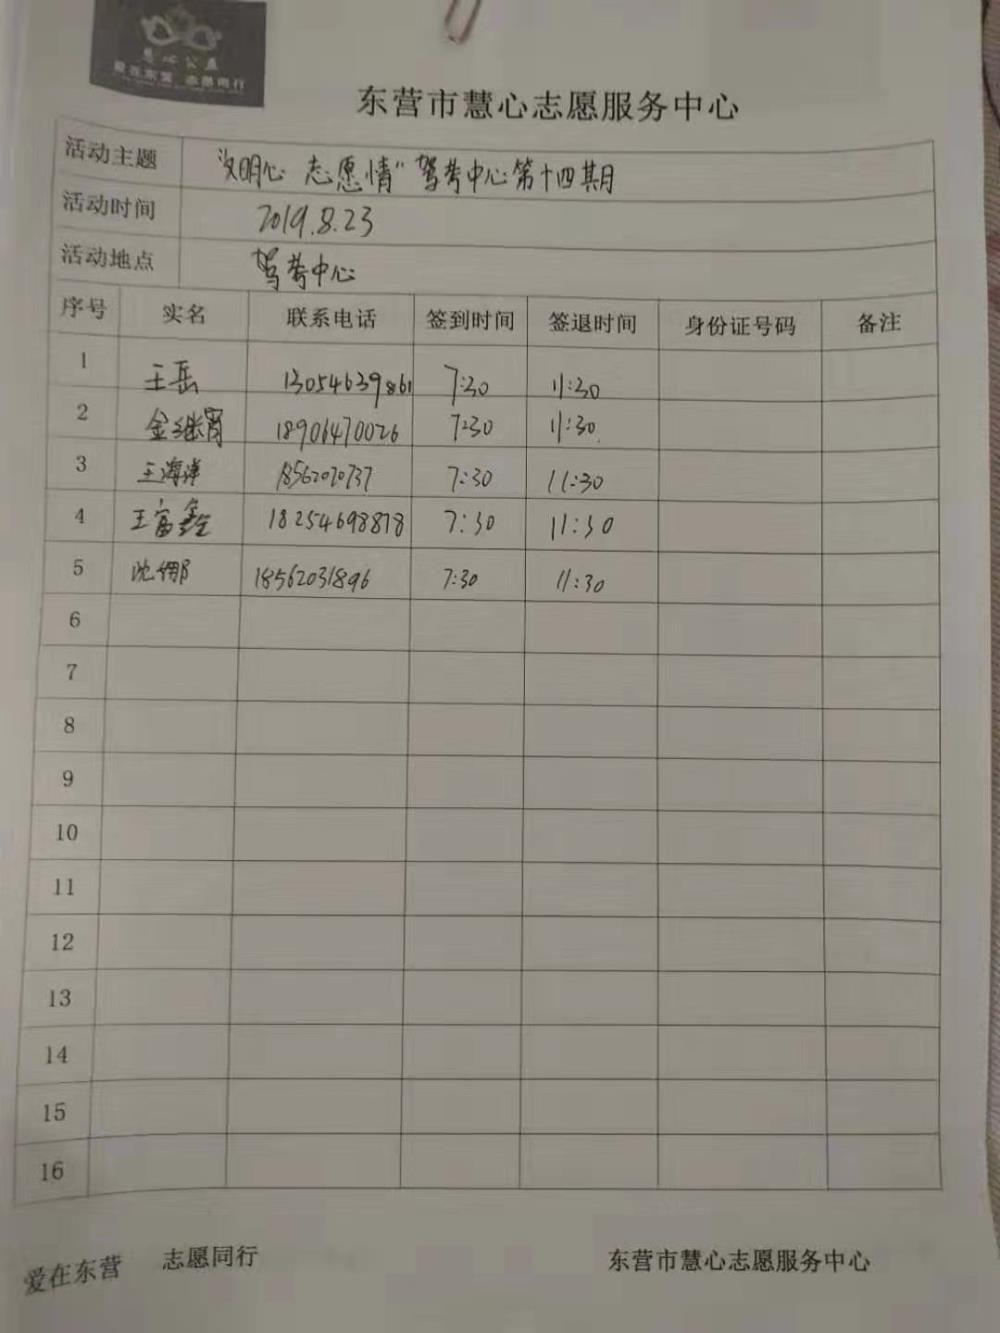 慧心公益
爱在东营 志愿同行
东营市慧心志愿服务中心
活动主题 “文明心 志愿情”驾考中心第十四期
活动时间 2019.8.23
活动地点 驾考中心
序号 实名 联系电话 签到时间 签退时间 身份证号码 备注
1 王岳 13054639861 7:30 11:30
2 金继霄 18906470026 7:30 11:30
3 王海洋 18562020737 7:30 11:30
4 王富鑫 18254698878 7:30 11:30
5 沈娜 18562031896 7:30 11:30
6
7
8
9
10
11
12
13
14
15
16
爱在东营 志愿同行 东营市慧心志愿服务中心